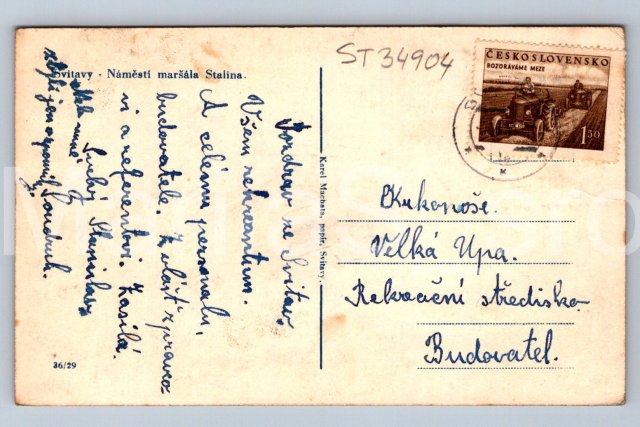 Svitavy - Náměstí maršála Stalina.
ST 34904
ČESKOSLOVENSKO
ROZORÁVÁME MEZE
1,50
Pozdrav ze Svitav
Všem rekreantum.
A celému personalu,
budovatele. Zvlášť zpravco
vi a referentovi. Zasílá
Luby Stanislav
Karel Machata, papír, Svitavy.
Krkonoše.
Velká Upa.
Rekreační středisko
Budovatel.
36/29